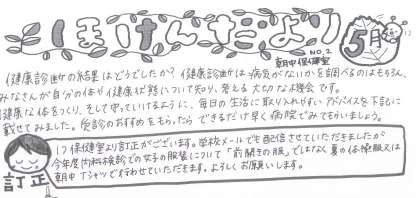 ほけんだより
NO.2
朝中保健室
5月
健康診断の結果はどうでしたか?健康診断は病気がないかを調べるのはもちろん、
みなさんが自分の体や健康状態について知り、考える大切な機会です。
健康な体をつくり、そして守っていけるように、毎日の生活に取り入れやすいアドバイスを下記に
載せてみました。受診のおすすめをもらったらできるだけ早く病院でみてもらいましょう。
訂正
1つ保健室より訂正がございます。学校メールでも配信させていただきましたが
今年度内科検診での女子の服装について「前開きの服」ではなく夏の体操服又は
朝中Tシャツで行わせていただきます。よろしくお願いします。